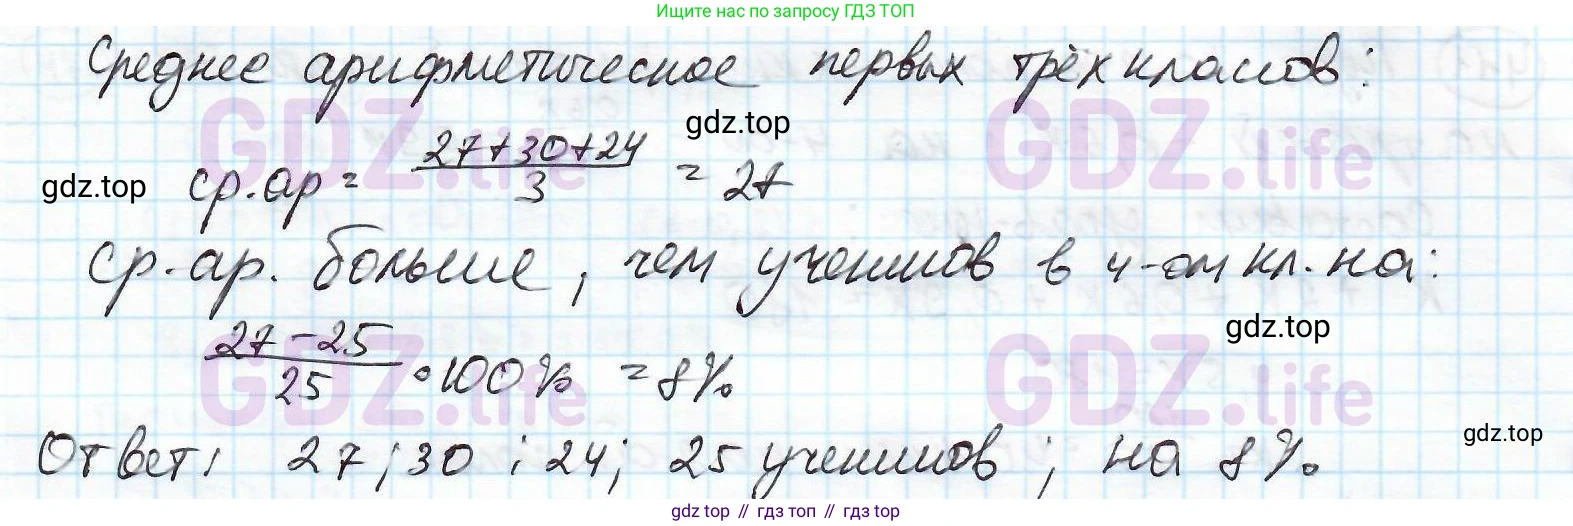 Ищите нас по запросу ГДЗ ТОП
Среднее арифметическое первых трёх классов:
gdz.top
ср.ар = (27+30+24)/3 = 27
gdz.top
GDZ.life GDZ.life
Ср.ар. больше, чем учеников в 4-ом кл. на:
gdz.top
(27-25)/25 • 100% = 8%
GDZ.life GDZ.life
gdz.top
Ответ: 27; 30; 24; 25 учеников; на 8%
gdz top // гдз топ // gdz top